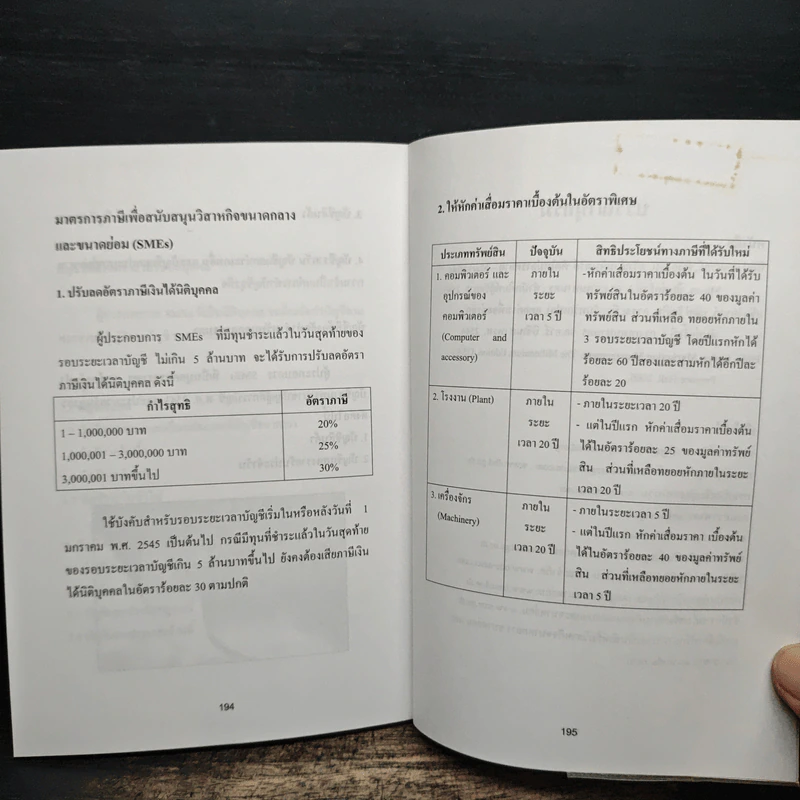 มาตรการภาษีเพื่อสนับสนุนวิสาหกิจขนาดกลาง
และขนาดย่อม (SMEs)
1. ปรับลดอัตราภาษีเงินได้นิติบุคคล
ผู้ประกอบการ SMEs ที่มีทุนชำระแล้วในวันสุดท้ายของ
รอบระยะเวลาบัญชี ไม่เกิน 5 ล้านบาท จะได้รับการปรับลดอัตรา
ภาษีเงินได้นิติบุคคล ดังนี้
กำไรสุทธิ อัตราภาษี
1 – 1,000,000 บาท 20%
1,000,001 – 3,000,000 บาท 25%
3,000,001 บาทขึ้นไป 30%
ใช้บังคับสำหรับรอบระยะเวลาบัญชีเริ่มในหรือหลังวันที่ 1
มกราคม พ.ศ. 2545 เป็นต้นไป กรณีมีทุนที่ชำระแล้วในวันสุดท้าย
ของรอบระยะเวลาบัญชีเกิน 5 ล้านบาทขึ้นไป ยังคงต้องเสียภาษีเงิน
ได้นิติบุคคลในอัตราร้อยละ 30 ตามปกติ
194
2. ให้หักค่าเสื่อมราคาเบื้องต้นในอัตราพิเศษ
ประเภททรัพย์สิน ปัจจุบัน สิทธิประโยชน์ทางภาษีที่ได้รับใหม่
1. คอมพิวเตอร์ และ ภายใน -หักค่าเสื่อมราคาเบื้องต้น ในวันที่ได้รับ
อุปกรณ์ของ ระยะ ทรัพย์สินในอัตราร้อยละ 40 ของมูลค่า
คอมพิวเตอร์ เวลา 5 ปี ทรัพย์สิน ส่วนที่เหลือ ทยอยหักภายใน
(Computer and 3 รอบระยะเวลาบัญชี โดยปีแรกหักได้
accessory) ร้อยละ 60 ปีสองและสามหักได้อีกปีละ
ร้อยละ 20
2. โรงงาน (Plant) ภายใน - ภายในระยะเวลา 20 ปี
ระยะ - แต่ในปีแรก หักค่าเสื่อมราคาเบื้องต้น
เวลา 20 ปี ได้ในอัตราร้อยละ 25 ของมูลค่าทรัพย์
สิน ส่วนที่เหลือทยอยหักภายในระยะ
เวลา 20 ปี
3. เครื่องจักร ภายใน - ภายในระยะเวลา 5 ปี
(Machinery) ระยะ - แต่ในปีแรก หักค่าเสื่อมราคา เบื้องต้น
เวลา 20 ปี ได้ในอัตราร้อยละ 40 ของมูลค่าทรัพย์
สิน ส่วนที่เหลือทยอยหักภายในระยะ
เวลา 5 ปี
195